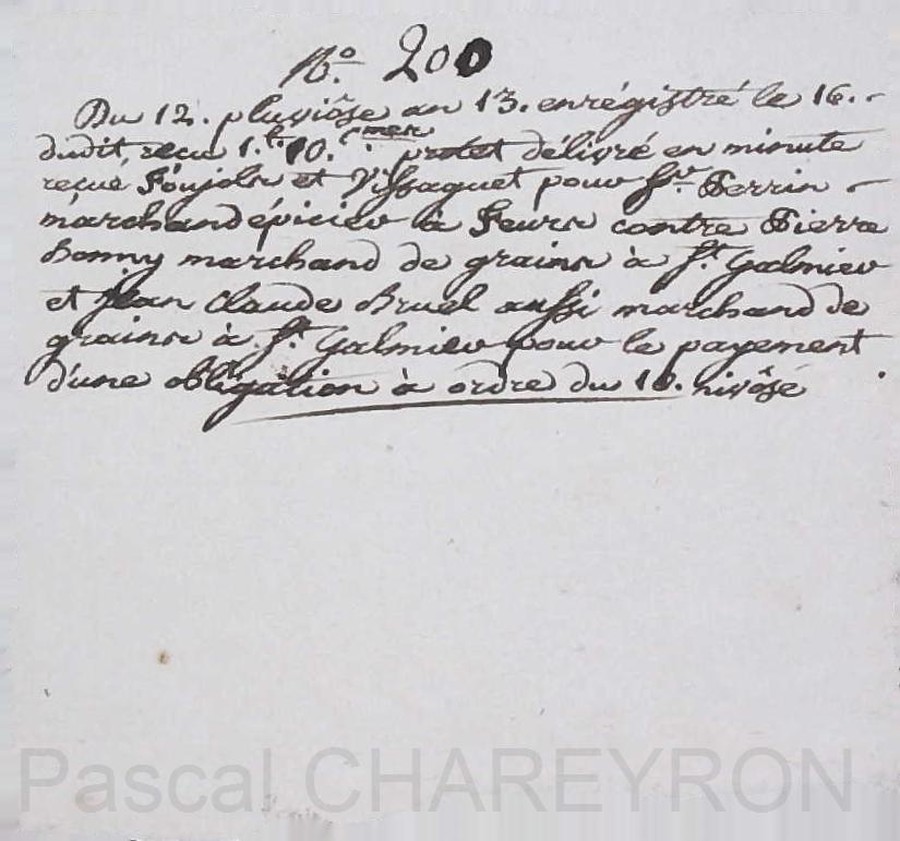 N.o 200
Du 12. pluviôse an 13. enrégistré le 16.
dudit, reçu 1.f 10.cmes protet délivré en minute
reçue Poujols et Vissaguet pour Sr. Perrin
marchand épicier à Feurs contre Pierre
Bonny marchand de grains à St. Galmier
et Jean Claude Bruel aussi marchand de
grains à St. Galmier pour le payement
d'une obligation à ordre du 10. nivôse
Pascal CHAREYRON